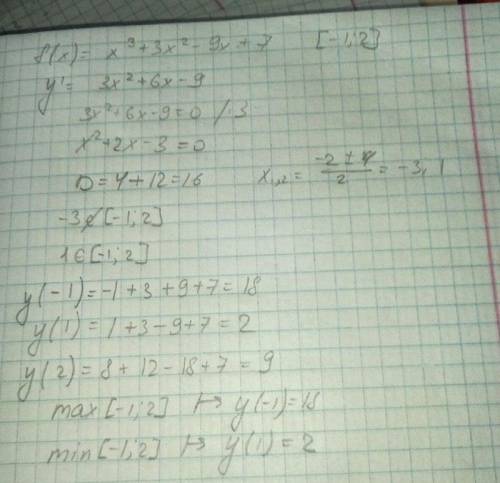 f(x) = x³+3x²-9x+7 [-1;2]
y' = 3x²+6x-9
3x²+6x-9=0 /:3
x²+2x-3=0
D=4+12=16 x₁,₂ = (-2±4)/2 = -3, 1
-3∉[-1;2]
1∈[-1;2]
y(-1)=-1+3+9+7=18
y(1)=1+3-9+7=2
y(2)=8+12-18+7=9
max[-1;2] ↦ y(-1)=18
min[-1;2] ↦ y(1)=2